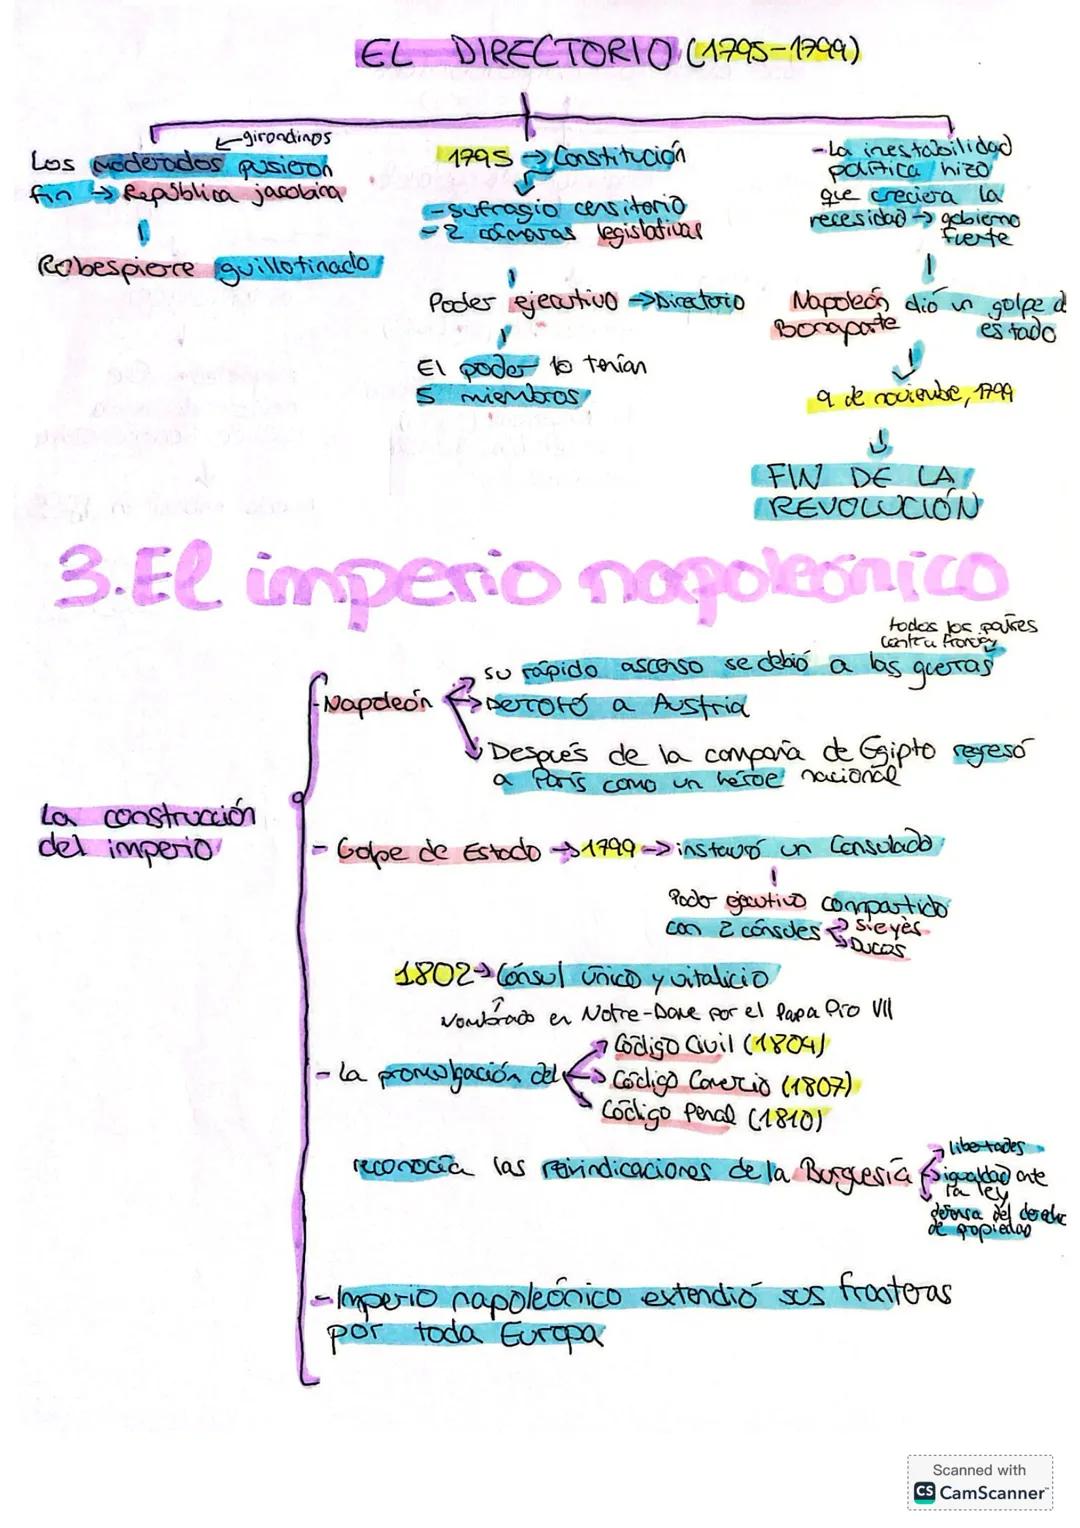 EL DIRECTORIO (1795-1799)
←girondinos
Los moderados pusieron
fin → República jacobina
Robespierre guillotinado
1795 → Constitución
- sufragio censitario
- 2 cámaras legislativas
Poder ejecutivo → Directorio
El poder lo tenían
5 miembros
- La inestabilidad
política hizo
que creciera la
necesidad → gobierno
fuerte
Napoleón dió un golpe d
Bonaparte estado
9 de noviembre, 1799
FIN DE LA
REVOLUCIÓN
3. El imperio napoleónico
La construcción
del imperio
- Napoleón
todos los países
contra Francia
su rápido ascenso se debió a las guerras
Derrotó a Austria
Después de la campaña de Egipto regresó
a París como un héroe nacional
- Golpe de Estado → 1799 → instauró un Consulado
Poder ejecutivo compartido
con 2 cónsules → Sieyès
→ Ducos
1802 → Cónsul único y vitalicio
Nombrado en Notre-Dame por el Papa Pio VII
- La promulgación del
Código Civil (1804)
Código Comercio (1807)
Código Penal (1810)
reconocía las reivindicaciones de la Burguesía
libertades
igualdad ante
la ley
defensa del derecho
de propiedad
- Imperio napoleónico extendió sus fronteras
por toda Europa
Scanned with
CS CamScanner